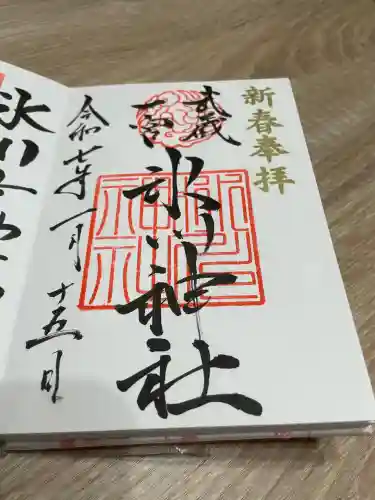 新春奉拝
武蔵
一宮
氷川神社
令和七年一月十五日